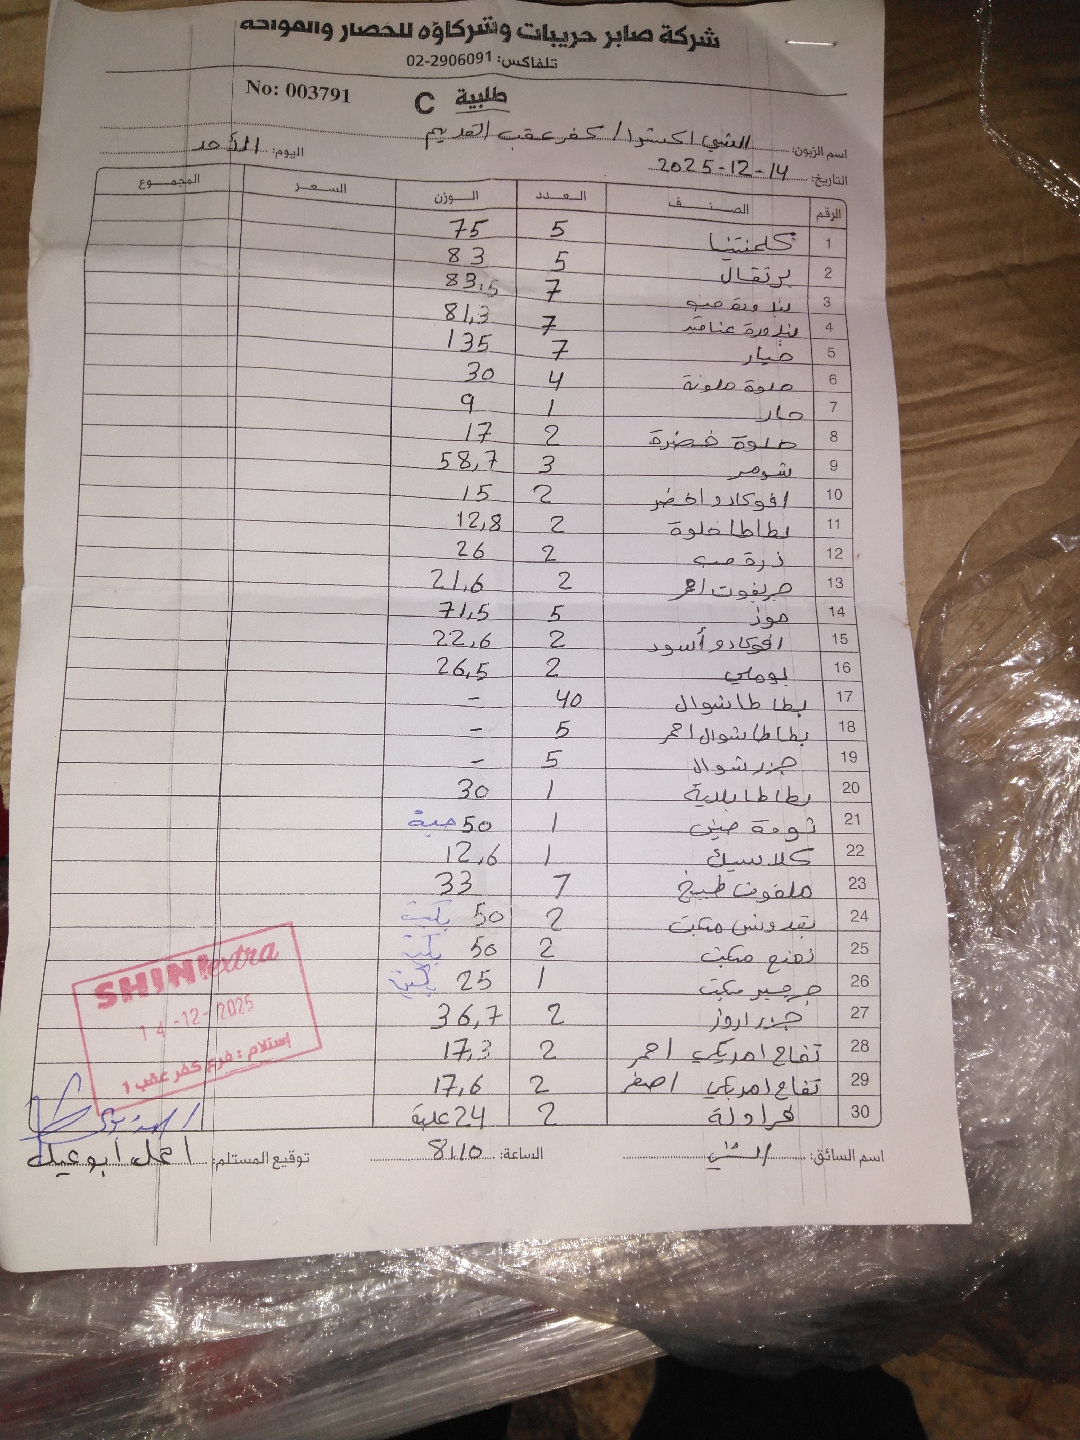 شركة صابر حريبات وشركاؤه للخضار والفواكه
تلفاكس: 02-2906091
No: 003791
طلبية C
اسم الزبون: الشني اكسترا / كفر عقب القديم
اليوم: الأحد
التاريخ: 14-12-2025
الرقم الصنف العدد الوزن السعر المجموع
1 كلمنتينا 5 75
2 برتقال 5 83
3 بندورة حب 7 83,5
4 بندورة عناقيد 7 81,3
5 خيار 7 135
6 حلوة ملونة 4 30
7 حار 1 9
8 حلوة خضرة 2 17
9 شومر 3 58,7
10 افوكادو اخضر 2 15
11 بطاطا حلوة 2 12,8
12 ذرة حب 2 26
13 جريفوت احمر 2 21,6
14 موز 5 71,5
15 افوكادو أسود 2 22,6
16 بوملي 2 26,5
17 بطاطا شوال 40 -
18 بطاطا شوال احمر 5 -
19 جزر شوال 5 -
20 بطاطا بلدية 1 30
21 ثومة صيني 1 50 حبة
22 كلاسيك 1 12,6
23 ملفوف طبيخ 7 33
24 بقدونس مكبت 2 50 بكيت
25 نعنع مكبت 2 50 بكيت
26 جرجير مكبت 1 25 بكيت
27 جزر اروز 2 36,7
28 تفاح امريكي احمر 2 17,3
29 تفاح امريكي اصفر 2 17,6
30 فراولة 2 24 علبة
SHINI extra
14-12-2025
إستلام : فرع كفر عقب 1
اسم السائق:
الساعة: 8:10
توقيع المستلم: